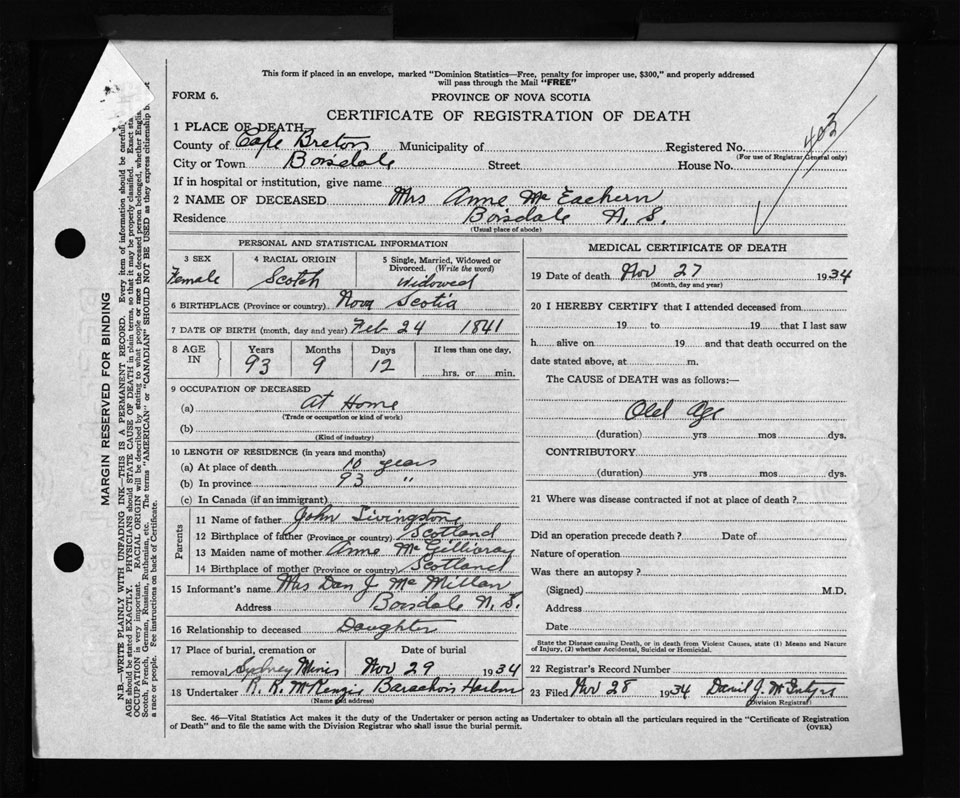 This form if placed in an envelope, marked "Dominion Statistics—Free, penalty for improper use, $300," and properly addressed
will pass through the Mail "FREE"
FORM 6. PROVINCE OF NOVA SCOTIA
CERTIFICATE OF REGISTRATION OF DEATH
403
1 PLACE OF DEATH
County of Cape Breton Municipality of Registered No.
(For use of Registrar General only)
City or Town Boisdale Street House No.
If in hospital or institution, give name
2 NAME OF DECEASED Mrs Anne McEachern
Residence Boisdale N. S.
(Usual place of abode)
PERSONAL AND STATISTICAL INFORMATION
3 SEX 4 RACIAL ORIGIN 5 Single, Married, Widowed or
Divorced. (Write the word)
Female Scotch Widowed
6 BIRTHPLACE (Province or country) Nova Scotia
7 DATE OF BIRTH (month, day and year) Feb 24 1841
8 AGE IN Years Months Days If less than one day,
93 9 12 hrs. or min.
9 OCCUPATION OF DECEASED
(a) At Home
(Trade or occupation or kind of work)
(b)
(Kind of industry)
10 LENGTH OF RESIDENCE (in years and months)
(a) At place of death 10 years
(b) In province 93 "
(c) In Canada (if an immigrant)
Parents
11 Name of father John Livingstone
12 Birthplace of father (Province or country) Scotland
13 Maiden name of mother Anne McGillivray
14 Birthplace of mother (Province or country) Scotland
15 Informant's name Mrs Dan J McMillan
Address Boisdale N. S.
16 Relationship to deceased Daughter
17 Place of burial, cremation or Date of burial
removal Sydney Mines Nov 29 1934
18 Undertaker R. R. McKenzie Barachois Harbor
(Name and address)
MEDICAL CERTIFICATE OF DEATH
19 Date of death Nov 27 1934
(Month, day and year)
20 I HEREBY CERTIFY that I attended deceased from
19 to 19 that I last saw
h alive on 19 and that death occurred on the
date stated above, at m.
The CAUSE of DEATH was as follows:—
Old Age
(duration) yrs mos dys.
CONTRIBUTORY
(duration) yrs mos dys.
21 Where was disease contracted if not at place of death?
Did an operation precede death? Date of
Nature of operation
Was there an autopsy?
(Signed) M.D.
Address
Date
State the Disease causing Death, or in death from Violent Causes, state (1) Means and Nature
of Injury, (2) whether Accidental, Suicidal or Homicidal.
22 Registrar's Record Number
23 Filed Nov 28 1934 Daniel J. McIntyre
(Division Registrar)
Sec. 46—Vital Statistics Act makes it the duty of the Undertaker or person acting as Undertaker to obtain all the particulars required in the "Certificate of Registration
of Death" and to file the same with the Division Registrar who shall issue the burial permit. (OVER)
MARGIN RESERVED FOR BINDING
N.B.—WRITE PLAINLY WITH UNFADING INK—THIS IS A PERMANENT RECORD. Every item of information should be careful
AGE should be stated EXACTLY. PHYSICIANS should STATE CAUSE OF DEATH in plain terms, so that it may be properly classified. Exact sta
OCCUPATION is very important. RACIAL ORIGIN will be described by stating to what people or race the deceased person belonged, whether Englis
Scotch, French, German, Russian, Ruthenian, etc. The terms "AMERICAN" or "CANADIAN" SHOULD NOT BE USED as they express citizenship b
a race or people. See instructions on back of Certificate.